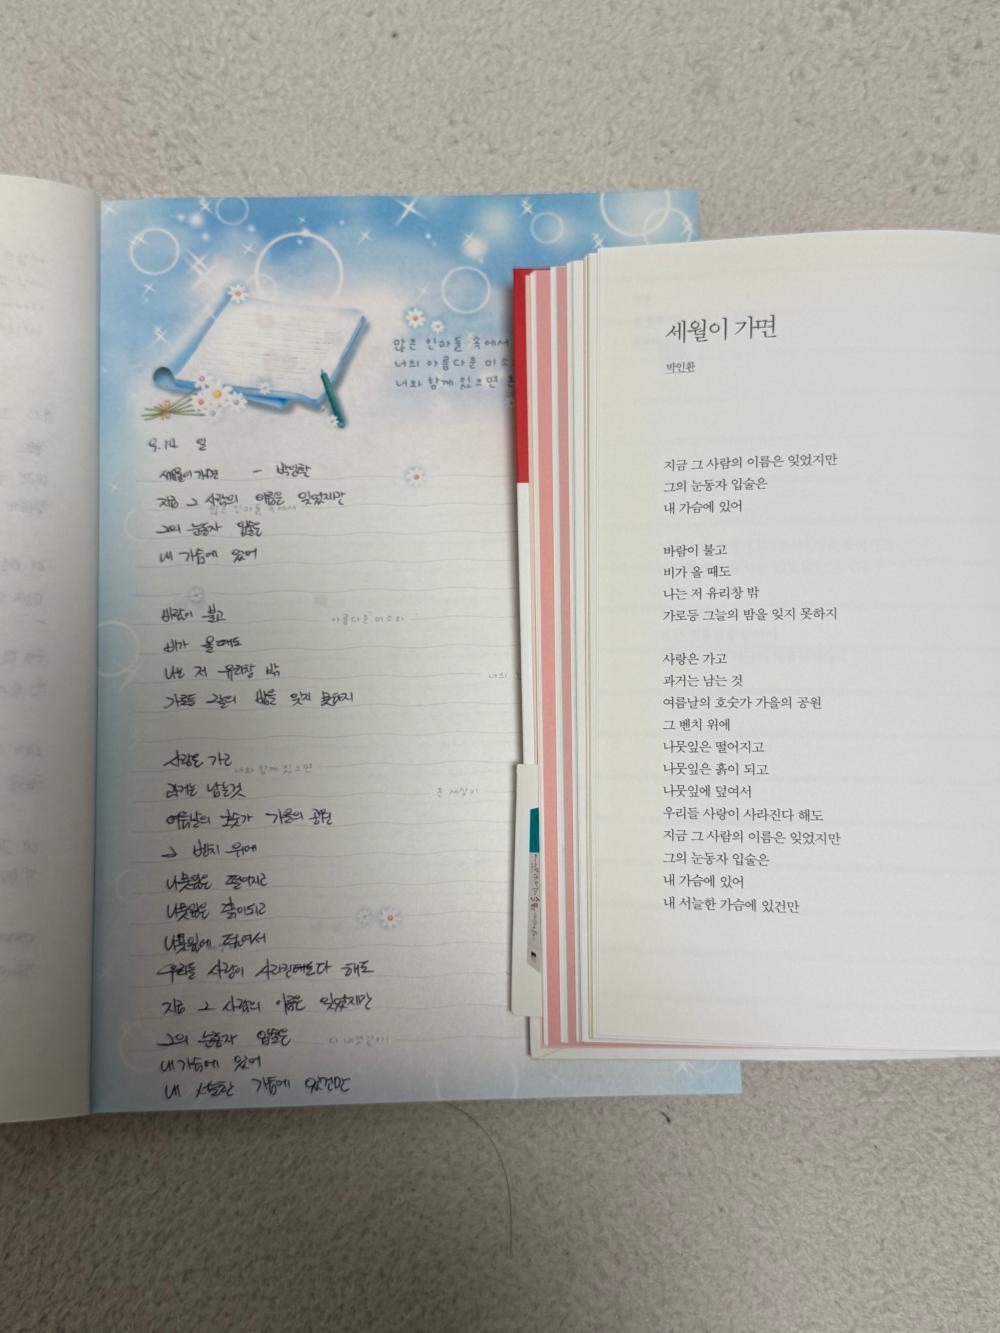 많은 인파들 속에서
너의 아름다운 미소
너와 함께 있으면
9.14 일
세월이 가면 - 박인환
지금 그 사람의 이름은 잊었지만
많은 인파들 속에서
그의 눈동자 입술은
내 가슴에 있어
바람이 불고
아름다운 미소와
비가 올때도
나는 저 유리창 밖
너의
가로등 그늘의 밤을 잊지 못하지
사랑은 가고
너와 함께 있으면
과거는 남는것
온 세상이
여름날의 호숫가 가을의 공원
그 벤치 위에
나뭇잎은 떨어지고
나뭇잎은 흙이되고
나뭇잎에 덮여서
우리들 사랑이 해도
지금 그 사람의 이름은 잊었지만
그의 눈동자 입술은
다 내것같아!
내 가슴에 있어
내 서늘한 가슴에 있건만
세월이 가면
박인환
지금 그 사람의 이름은 잊었지만
그의 눈동자 입술은
내 가슴에 있어
바람이 불고
비가 올 때도
나는 저 유리창 밖
가로등 그늘의 밤을 잊지 못하지
사랑은 가고
과거는 남는 것
여름날의 호숫가 가을의 공원
그 벤치 위에
나뭇잎은 떨어지고
나뭇잎은 흙이 되고
나뭇잎에 덮여서
우리들 사랑이 사라진다 해도
지금 그 사람의 이름은 잊었지만
그의 눈동자 입술은
내 가슴에 있어
내 서늘한 가슴에 있건만